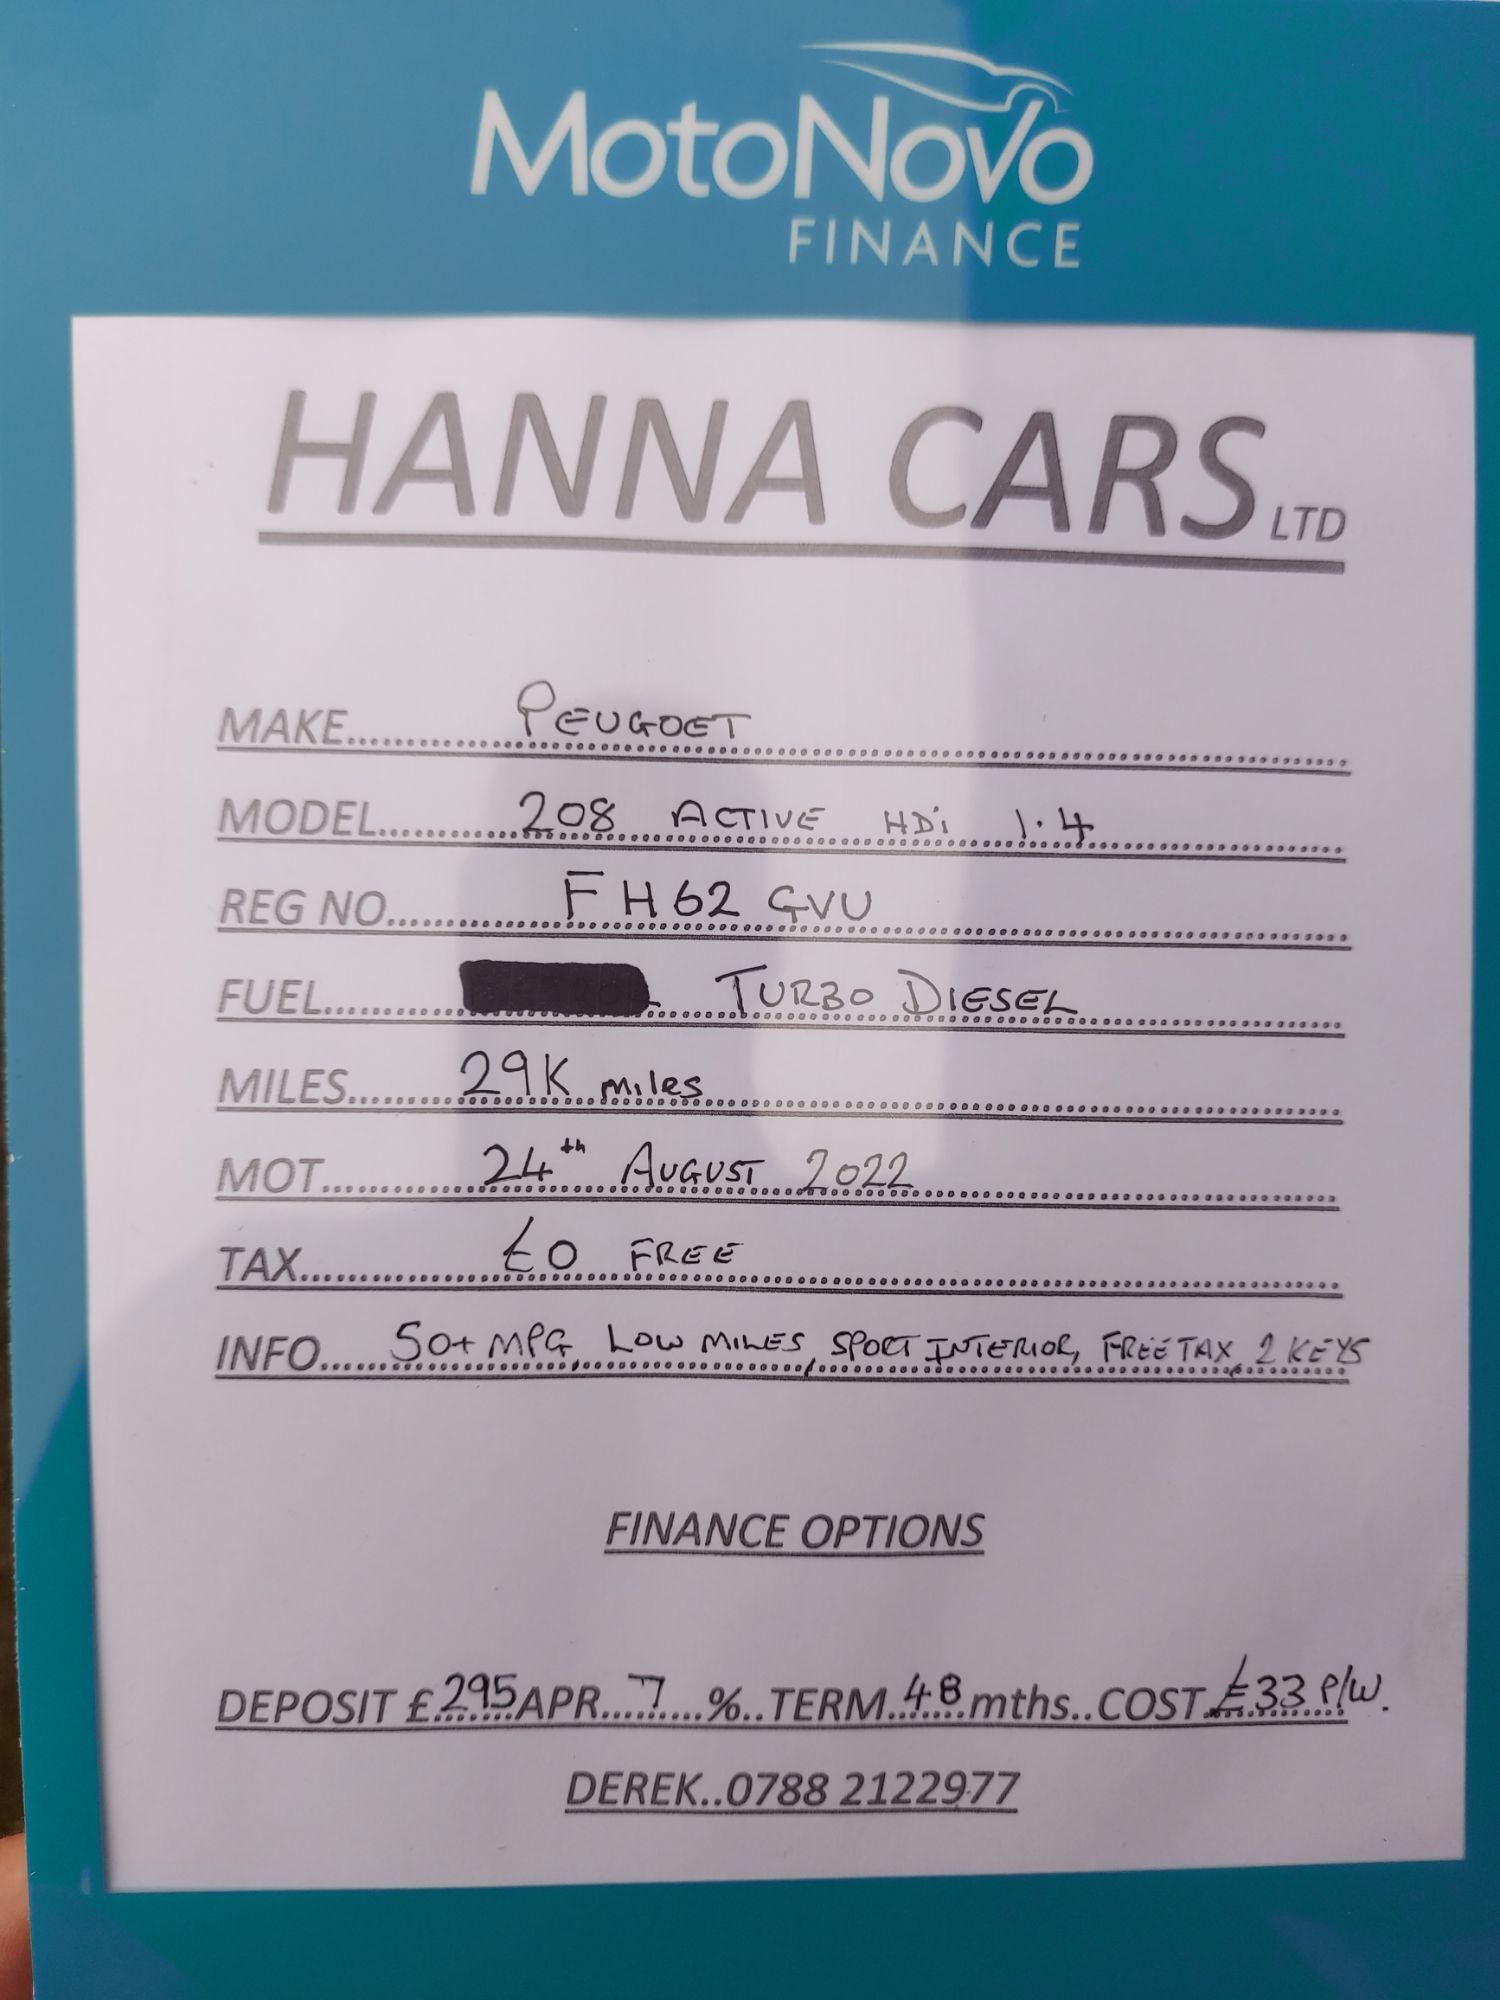 MotoNovo
FINANCE
HANNA CARS LTD
MAKE......PEUGOET
MODEL......208 ACTIVE HDi 1.4
REG NO......FH62 GVU
FUEL......TURBO DIESEL
MILES......29K miles
MOT......24th AUGUST 2022
TAX......£0 FREE
INFO......50+ MPG, LOW MILES, SPORT INTERIOR, FREE TAX, 2 KEYS
FINANCE OPTIONS
DEPOSIT £295 APR....7....%..TERM..48 mths..COST £33 P/W.
DEREK..0788 2122977